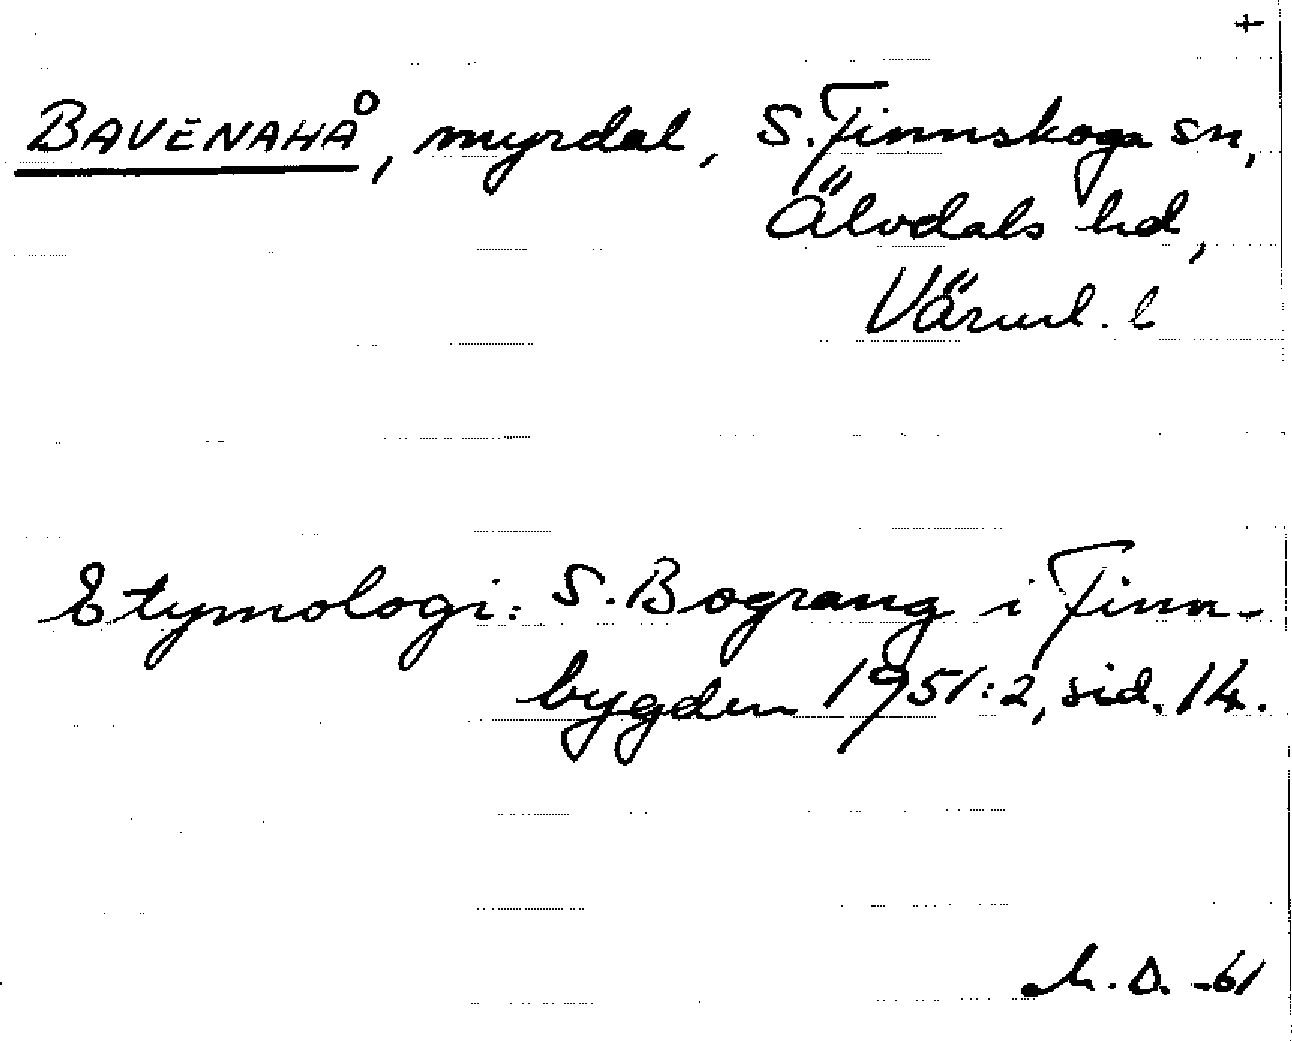 +
BAVENAHÅ, myrdal, S. Finnskoga sn,
Älvdals hd,
Värml. l
Etymologi: S. Bograng i Finn-
bygden 1951:2, sid. 14.
M. D. -61